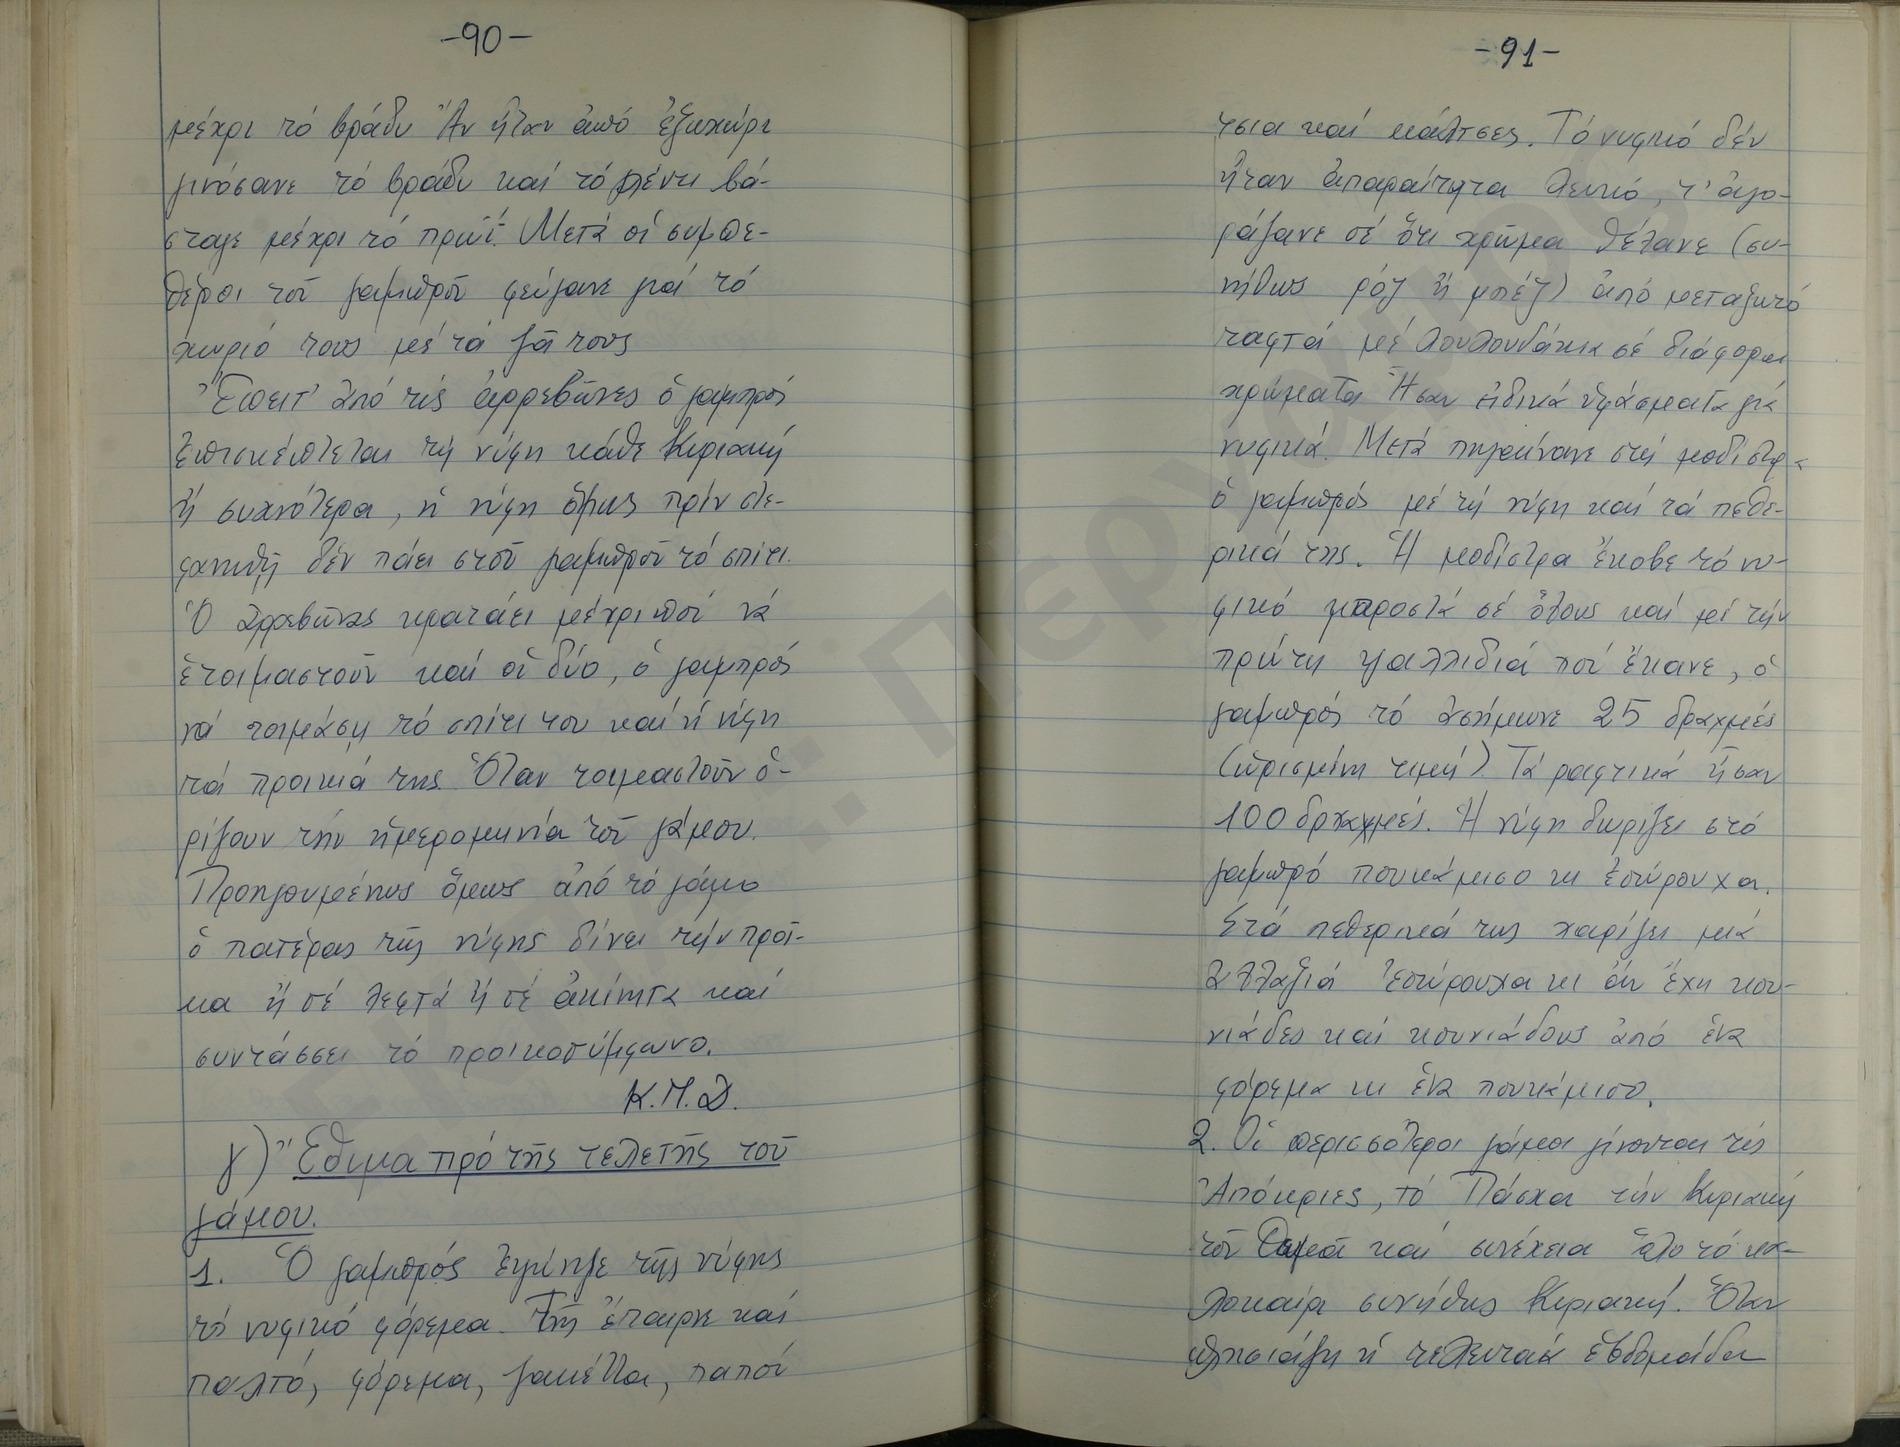 -90-
μέχρι τό βράδυ Ἄν ἦταν ἀπό ἐξωχώρι
γινόσανε τό βράδυ καί τό γλέντι βά-
σταγε μέχρι τό πρωΐ. Μετά οἱ συμπε-
θέροι τοῦ γαμπροῦ φεύγανε γιά τό
χωριό τους μέ τά ζᾶ τους
Ἔπειτ' ἀπό τίς ἀρρεβῶνες ὁ γαμπρός
ἐπισκέπτεται τή νύφη κάθε Κυριακή
ἤ συχνότερα, ἡ νύφη ὅμως πρίν στε-
φανωθῆ δέν πάει στοῦ γαμπροῦ τό σπίτι.
Ὁ ἀρρεβώνας κρατάει μέχρι πού νά
ἑτοιμαστοῦν καί οἱ δύο, ὁ γαμπρός
νά τοιμάση τό σπίτι του καί ἡ νύφη
τά προικιά της. Ὅταν τοιμαστοῦν ὁ-
ρίζουν τήν ἡμερομηνία τοῦ γάμου.
Προηγουμένως ὅμως ἀπό τό γάμο
ὁ πατέρας τῆς νύφης δίνει τήν προί-
κα ἤ σέ λεφτά ἤ σέ ἀκίνητα καί
συντάσσει τό προικοσύμφωνο.
Κ.Π.Δ.
γ) Ἔθιμα πρό τῆς τελετῆς τοῦ
γάμου.
1. Ὁ γαμπρός ἐψώνιζε τῆς νύφης
τό νυφικό φόρεμα. Τῆς ἔπαιρνε καί
παλτό, φόρεμα, ζακέττα, παπού
-91-
τσια καί κάλτσες. Τό νυφικό δέν
ἦταν ἀπαραίτητα λευκό, τ' ἀγο-
ράζανε σέ ὅτι χρῶμα θέλανε (συ-
νήθως ρόζ ἤ μπέζ) ἀπό μεταξωτό
ταφτά μέ λουλουδάκια σέ διάφορα
χρώματα Ἦσαν εἰδικά ὑφάσματα γιά
νυφικά. Μετά πηγαίνανε στή μοδίστρα
ὁ γαμπρός μέ τή νύφη καί τά πεθε-
ρικά της. Ἡ μοδίστρα ἔκοβε τό νυ-
φικό μπροστά σέ ὅλους καί μέ τήν
πρώτη ψαλλιδιά πού ἔκανε, ὁ
γαμπρός τό ἀσήμωνε 25 δραχμές
(ὡρισμένη τιμή). Τά ραφτικά ἦσαν
100 δραχμές. Ἡ νύφη δωρίζει στό
γαμπρό πουκάμισο κι ἐσώρουχα.
Στά πεθερικά της χαρίζει μιά
ἀλλαξιά ἐσώρουχα κι ἄν ἔχη κου-
νιάδες καί κουνιάδους ἀπό ἕνα
φόρεμα κι ἕνα πουκάμισο.
2. Οἱ περισσότεροι γάμοι γίνονται τίς
Ἀπόκριες, τό Πάσχα τήν Κυριακή
τοῦ Θωμᾶ καί συνέχεια ὅλο τό κα-
λοκαίρι συνήθως Κυριακή. Ὅταν
πλησιάζη ἡ τελευταία ἑβδομάδα